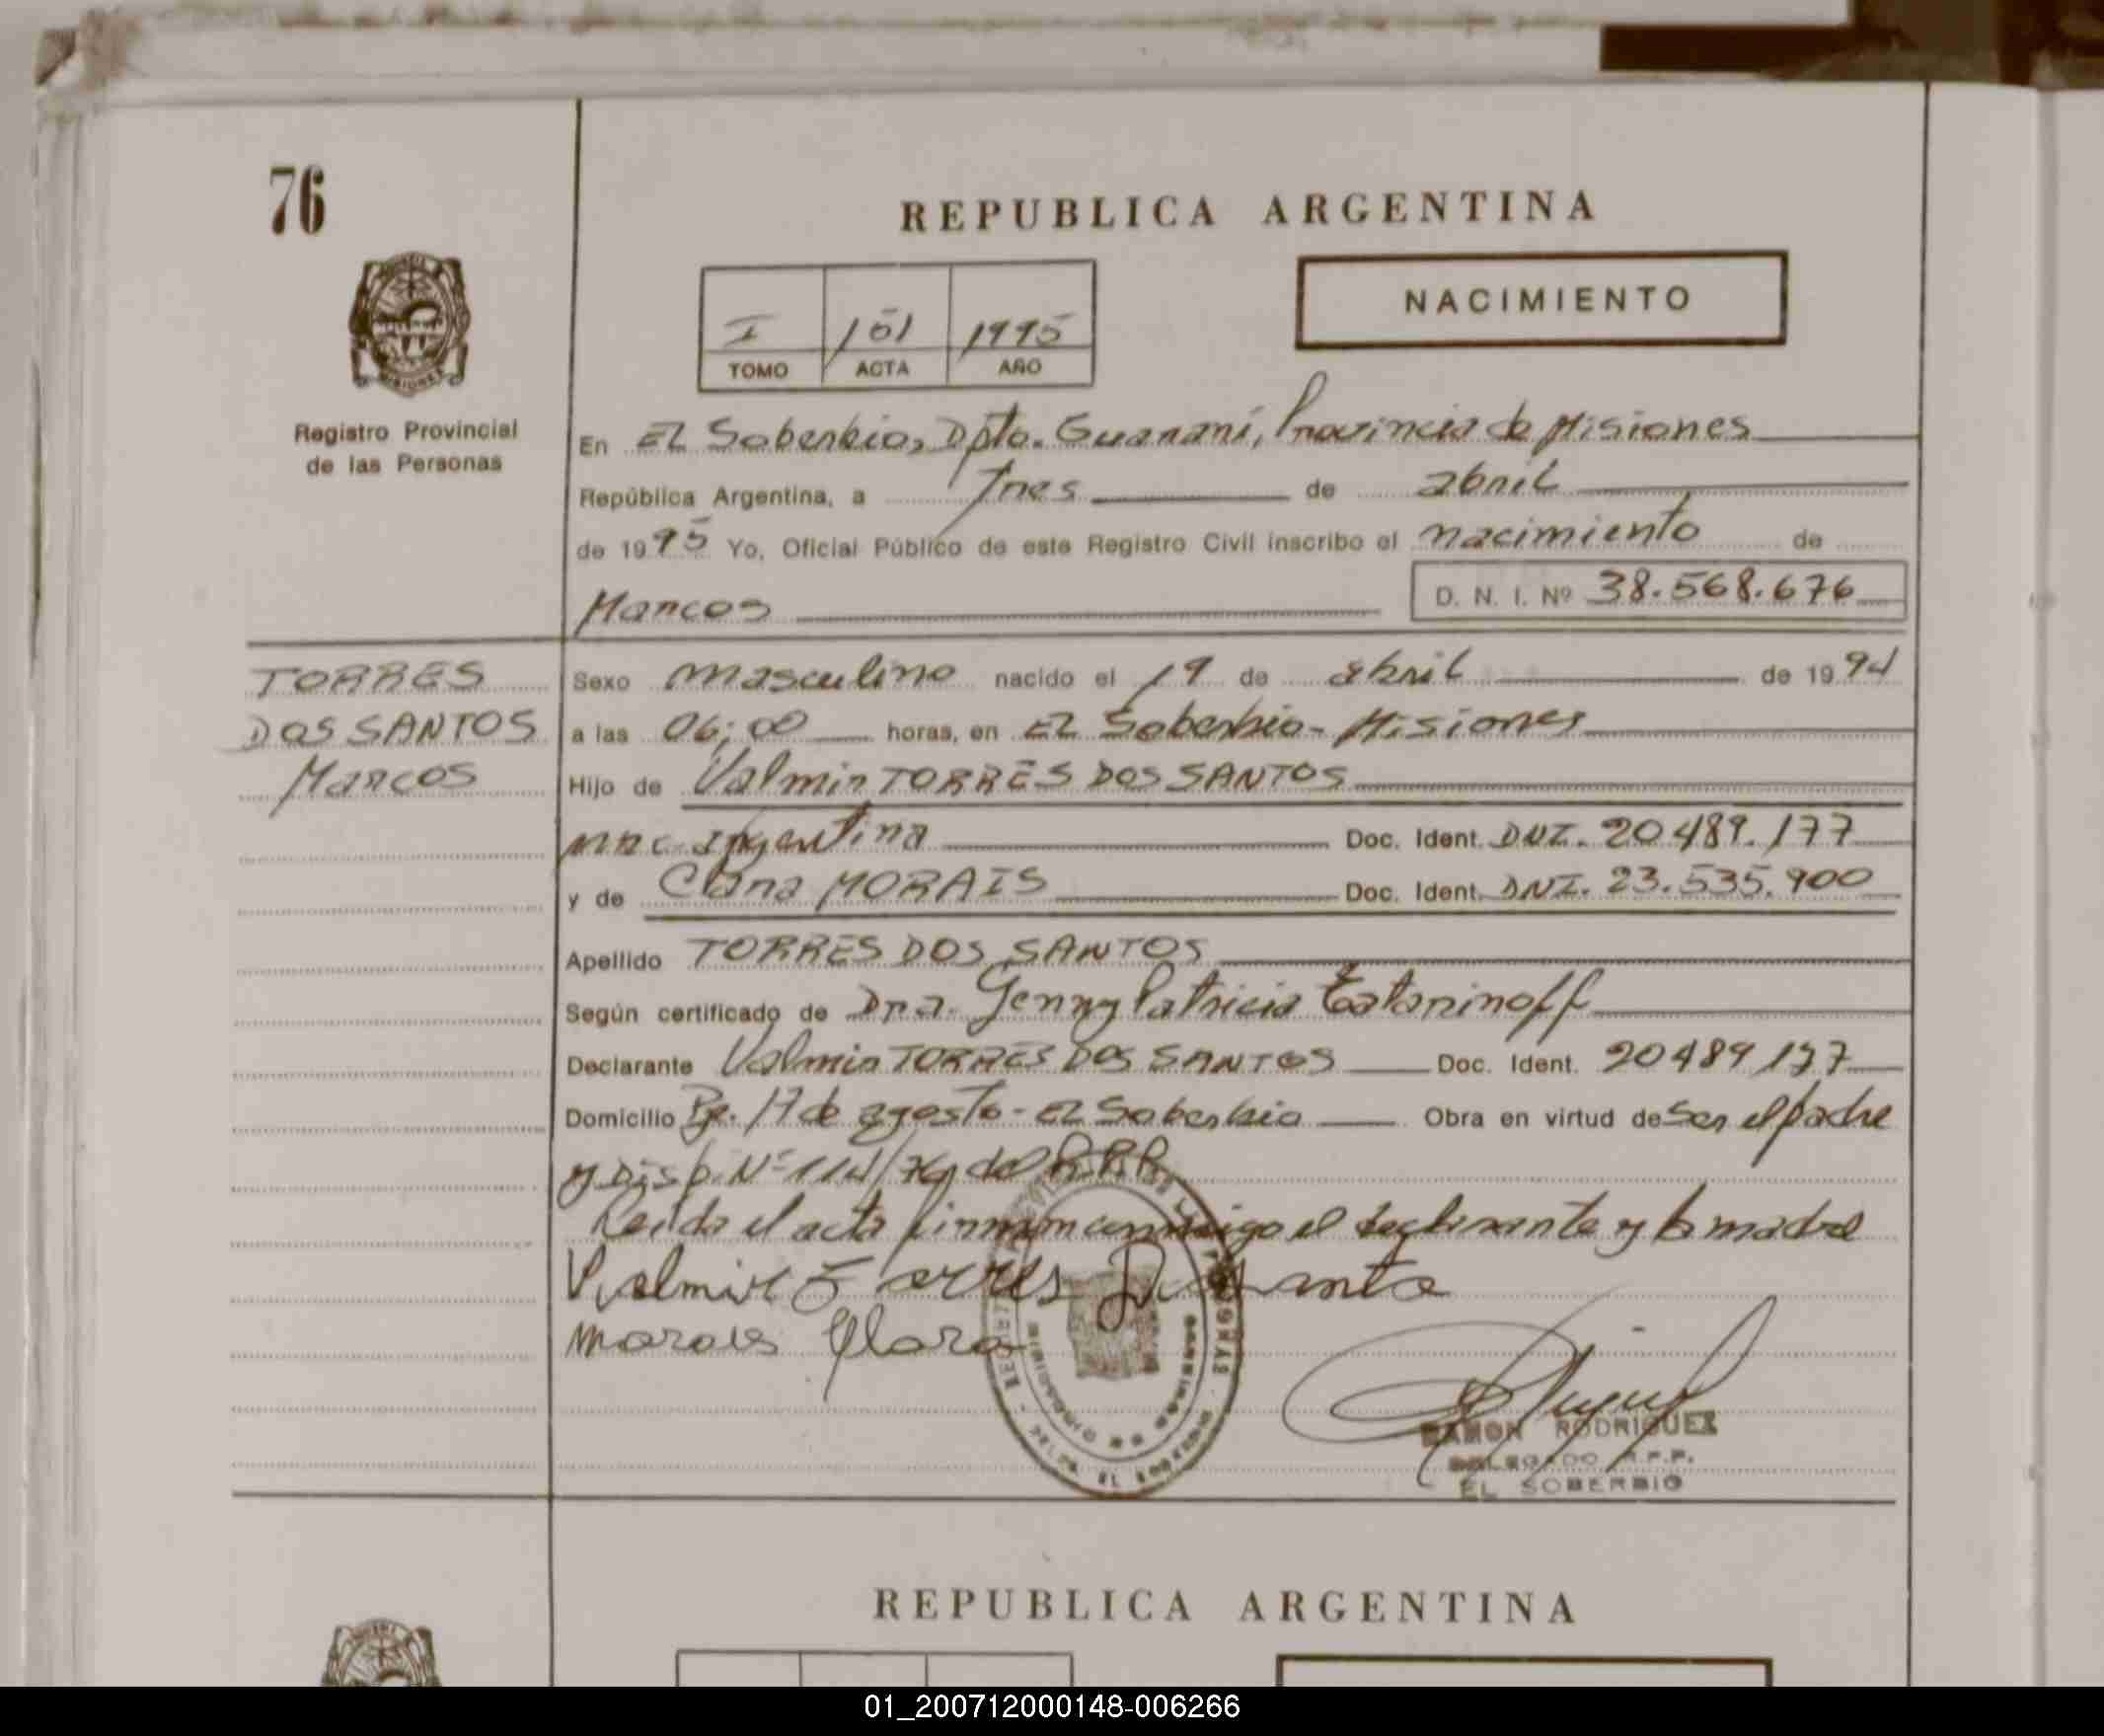 76
REPUBLICA ARGENTINA
NACIMIENTO
I 151 1995
TOMO ACTA AÑO
Registro Provincial
de las Personas
En El Soberbio, Dpto. Guaraní, Provincia de Misiones
República Argentina, a Tres de abril
de 1995 Yo, Oficial Público de este Registro Civil inscribo el nacimiento de
Marcos D. N. I. Nº 38.568.676
TORRES
DOS SANTOS
Marcos
Sexo masculino nacido el 19 de abril de 1994
a las 06:00 horas, en El Soberbio - Misiones
Hijo de Valmir TORRES DOS SANTOS
nac. argentina Doc. Ident. DNI. 20.489.177
y de Clara MORAIS Doc. Ident. DNI. 23.535.900
Apellido TORRES DOS SANTOS
Según certificado de Dra. Jenny Patricia
Declarante Valmir TORRES DOS SANTOS Doc. Ident. 20489177
Domicilio 17 de agosto - El Soberbio Obra en virtud de ser el padre
y Disp. Nº 114/76 del R.P.P.
Leida el acta firman conmigo el declarante y la madre
Valmir Torres
Morais Clara
RAMON RODRIGUEZ
DELEGADO R.P.P.
EL SOBERBIO
REPUBLICA ARGENTINA
01_200712000148-006266